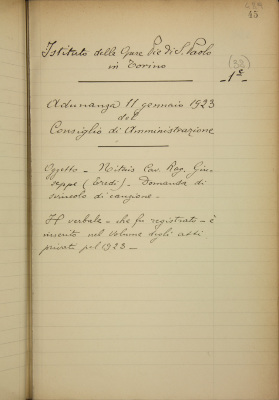 45
Istituto delle Opere Pie di S. Paolo
in Torino
(32)
1º
Adunanza 11 gennaio 1923
del
Consiglio di Amministrazione
Oggetto - Cav. Rag. Giu-
seppe (Eredi) - Domanda di
svincolo di cauzione -
Il verbale - che fu registrato - è
inserito nel volume degli atti
privati pel 1923 -